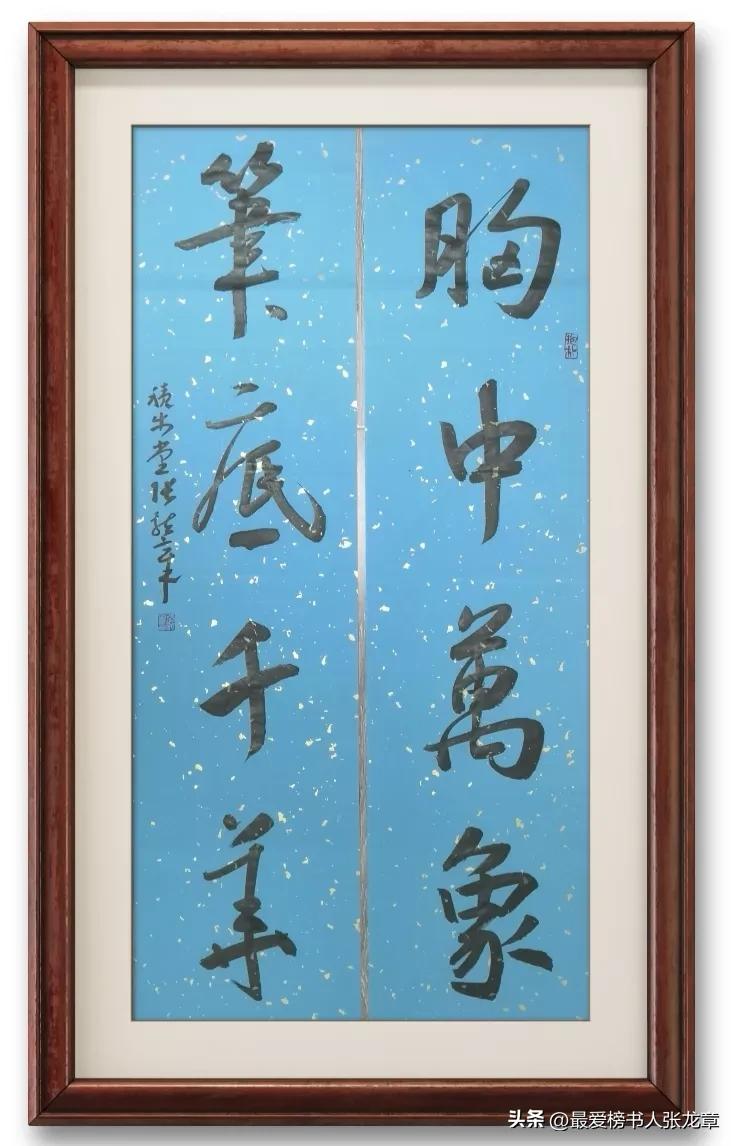 胸中萬象
筆底千華
堂張龍章
头条 @最爱榜书人张龙章